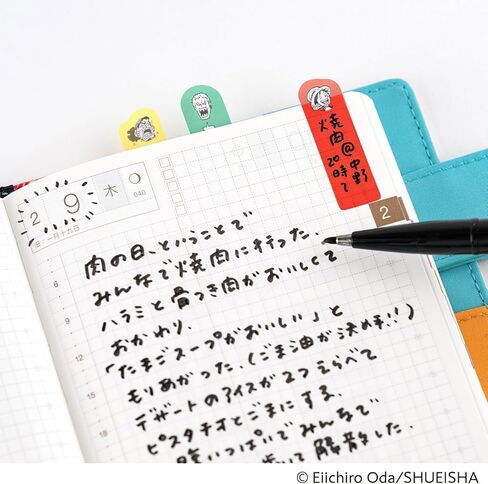 焼肉@中野
20時~
2 9 木
040
旧:一月十九日
2
肉の日、ということで
みんなで焼肉に行った。
ハラミと骨つき肉がおいしくて
おかわり。
「たまごスープがおいしい」と
もりあがった。(ごま油が決め手!!)
デザートのアイスが2つえらべて
ピスタチオとごまにする。
腹いっぱいでみんなで
歩いて解散した。
6
9
12
15
18
© Eiichiro Oda/SHUEISHA